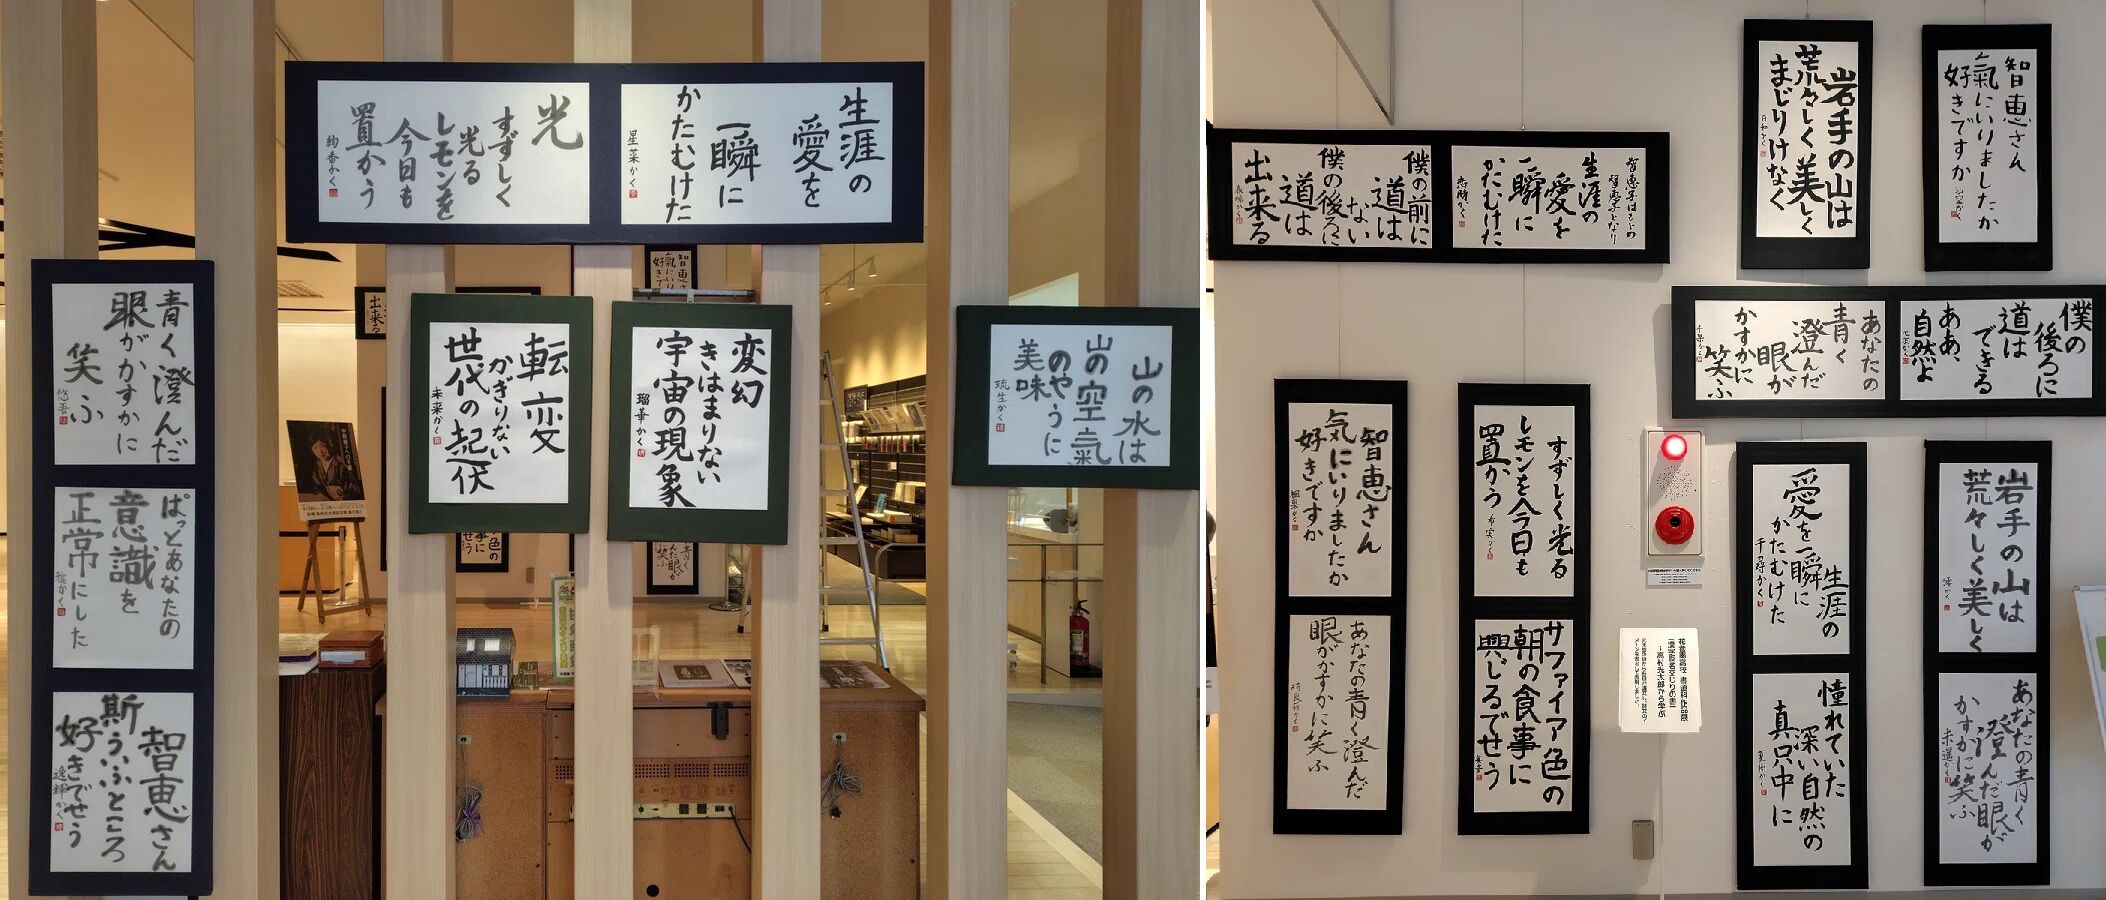 生涯の
愛を
一瞬に
かたむけた
星菜かく
光
すずしく
光る
レモンを
今日も
置かう
絢香かく
青く澄んだ
眼がかすかに
笑ふ
悠吾
ぱっとあなたの
意識を
正常にした
雅かく
智恵さん
斯ういふところ
好きでせう
逸輝かく
転変
かぎりない
世代の起伏
未来かく
変幻
きはまりない
宇宙の現象
瑠華かく
山の水は
山の空氣
のやうに
美味
琉生かく
智恵
氣に
好き
出来る
岩手の山は
荒々しく美しく
まじりけなく
智恵さん
氣にいりましたか
好きですか
智恵子はもとの
智恵子となり
生涯の
愛を
一瞬に
かたむけた
僕の前に
道は
ない
僕の後ろに
道は
出来る
僕の
後ろに
道は
できる
ああ、
自然よ
あなたの
青く
澄んだ
眼が
かすかに
笑ふ
千葉かく
智恵さん
気にいりましたか
好きですか
あなたの青く澄んだ
眼がかすかに笑ふ
すずしく光る
レモンを今日も
置かう
サファイア色の
朝の食事に
興じるでせう
生涯の
愛を一瞬に
かたむけた
千尋かく
憧れていた
深い自然の
真只中に
岩手の山は
荒々しく美しく
あなたの青く
澄んだ眼が
かすかに笑ふ